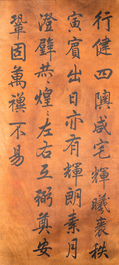 行健四隩咸宅輝曦表秩
寅賓出日亦有輝朗素月
澄璧共煌之左右互弼奠安
鞏固萬禩不易